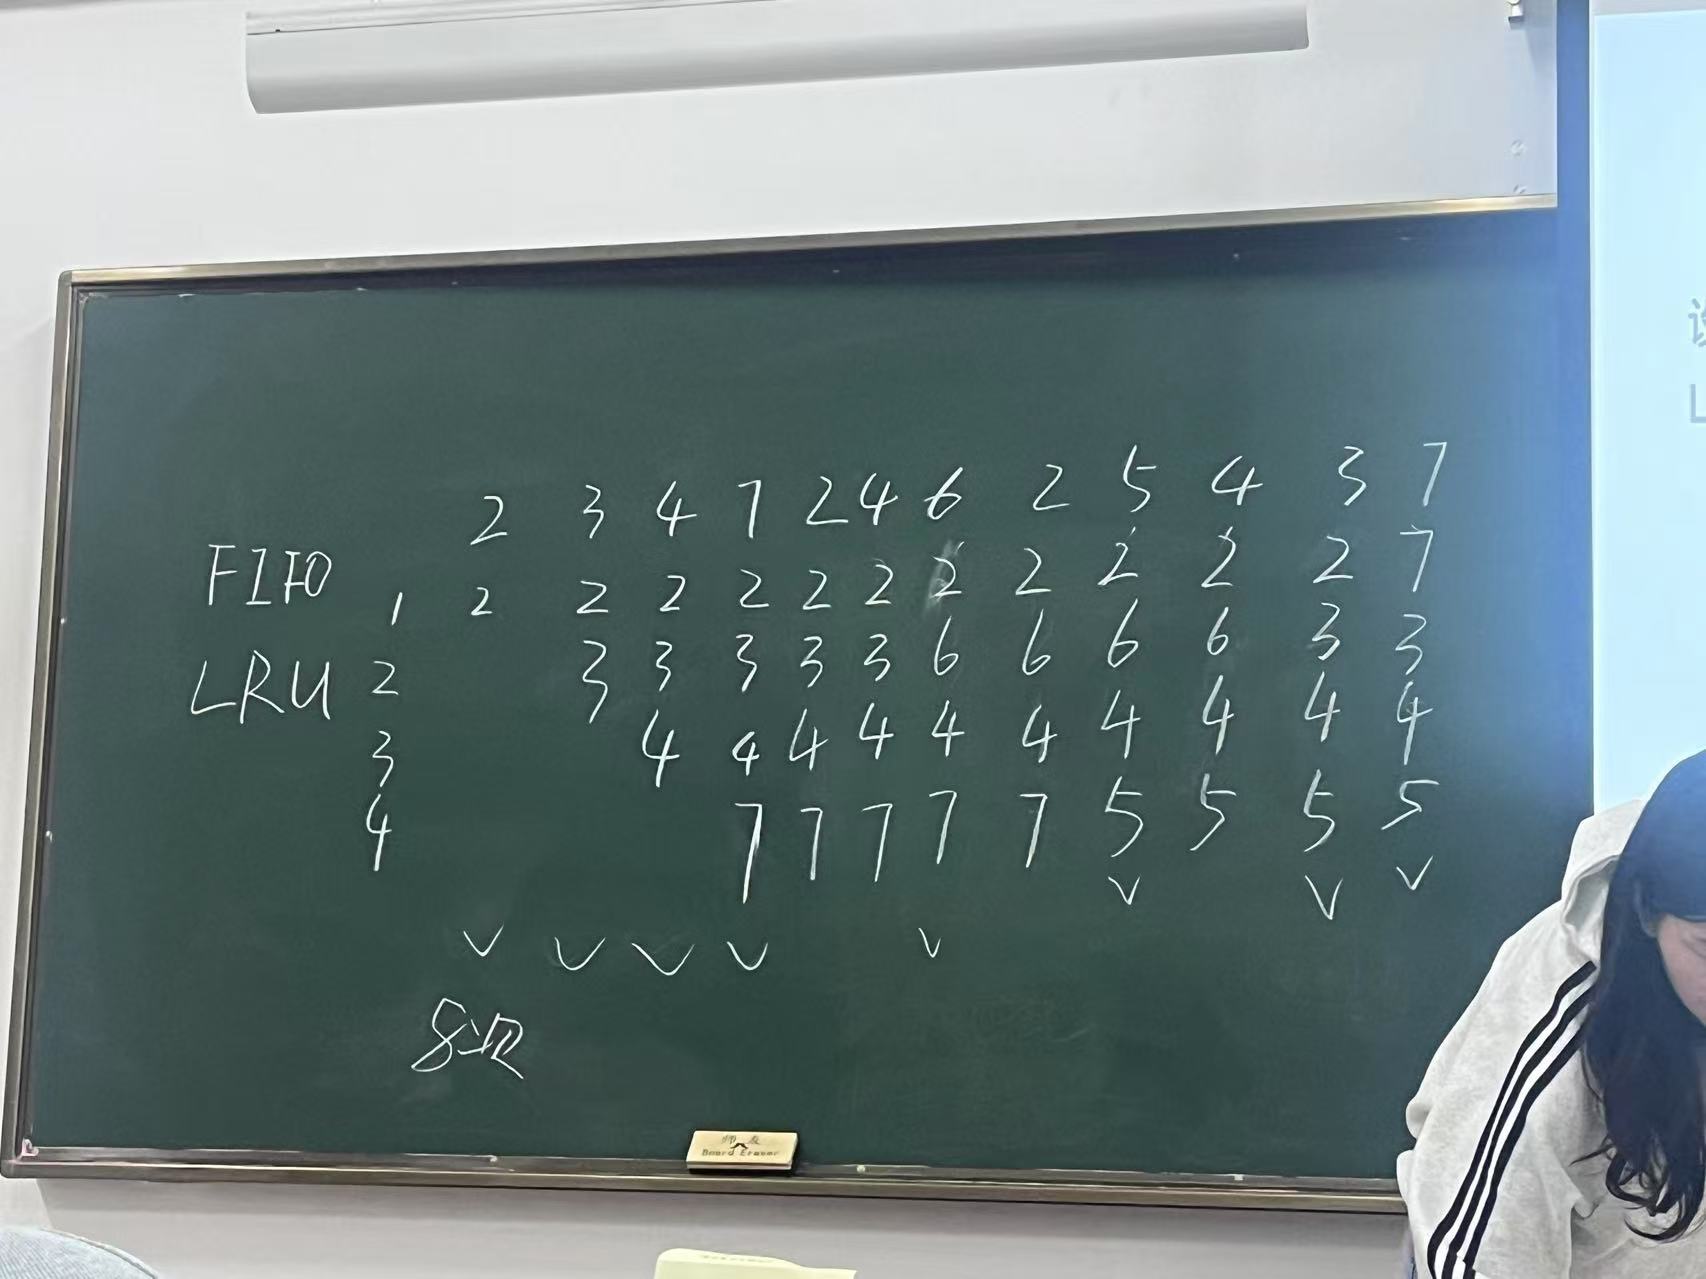 2 3 4 7 2 4 6 2 5 4 3 7
FIFO 1 2 2 2 2 2 2 2 2 2 2 2 7
LRU 2 3 3 3 3 3 6 6 6 6 3 3
3 4 4 4 4 4 4 4 4 4 4
4 7 7 7 7 7 5 5 5 5
v v v
v v v v v
8次
师友
Board Eraser